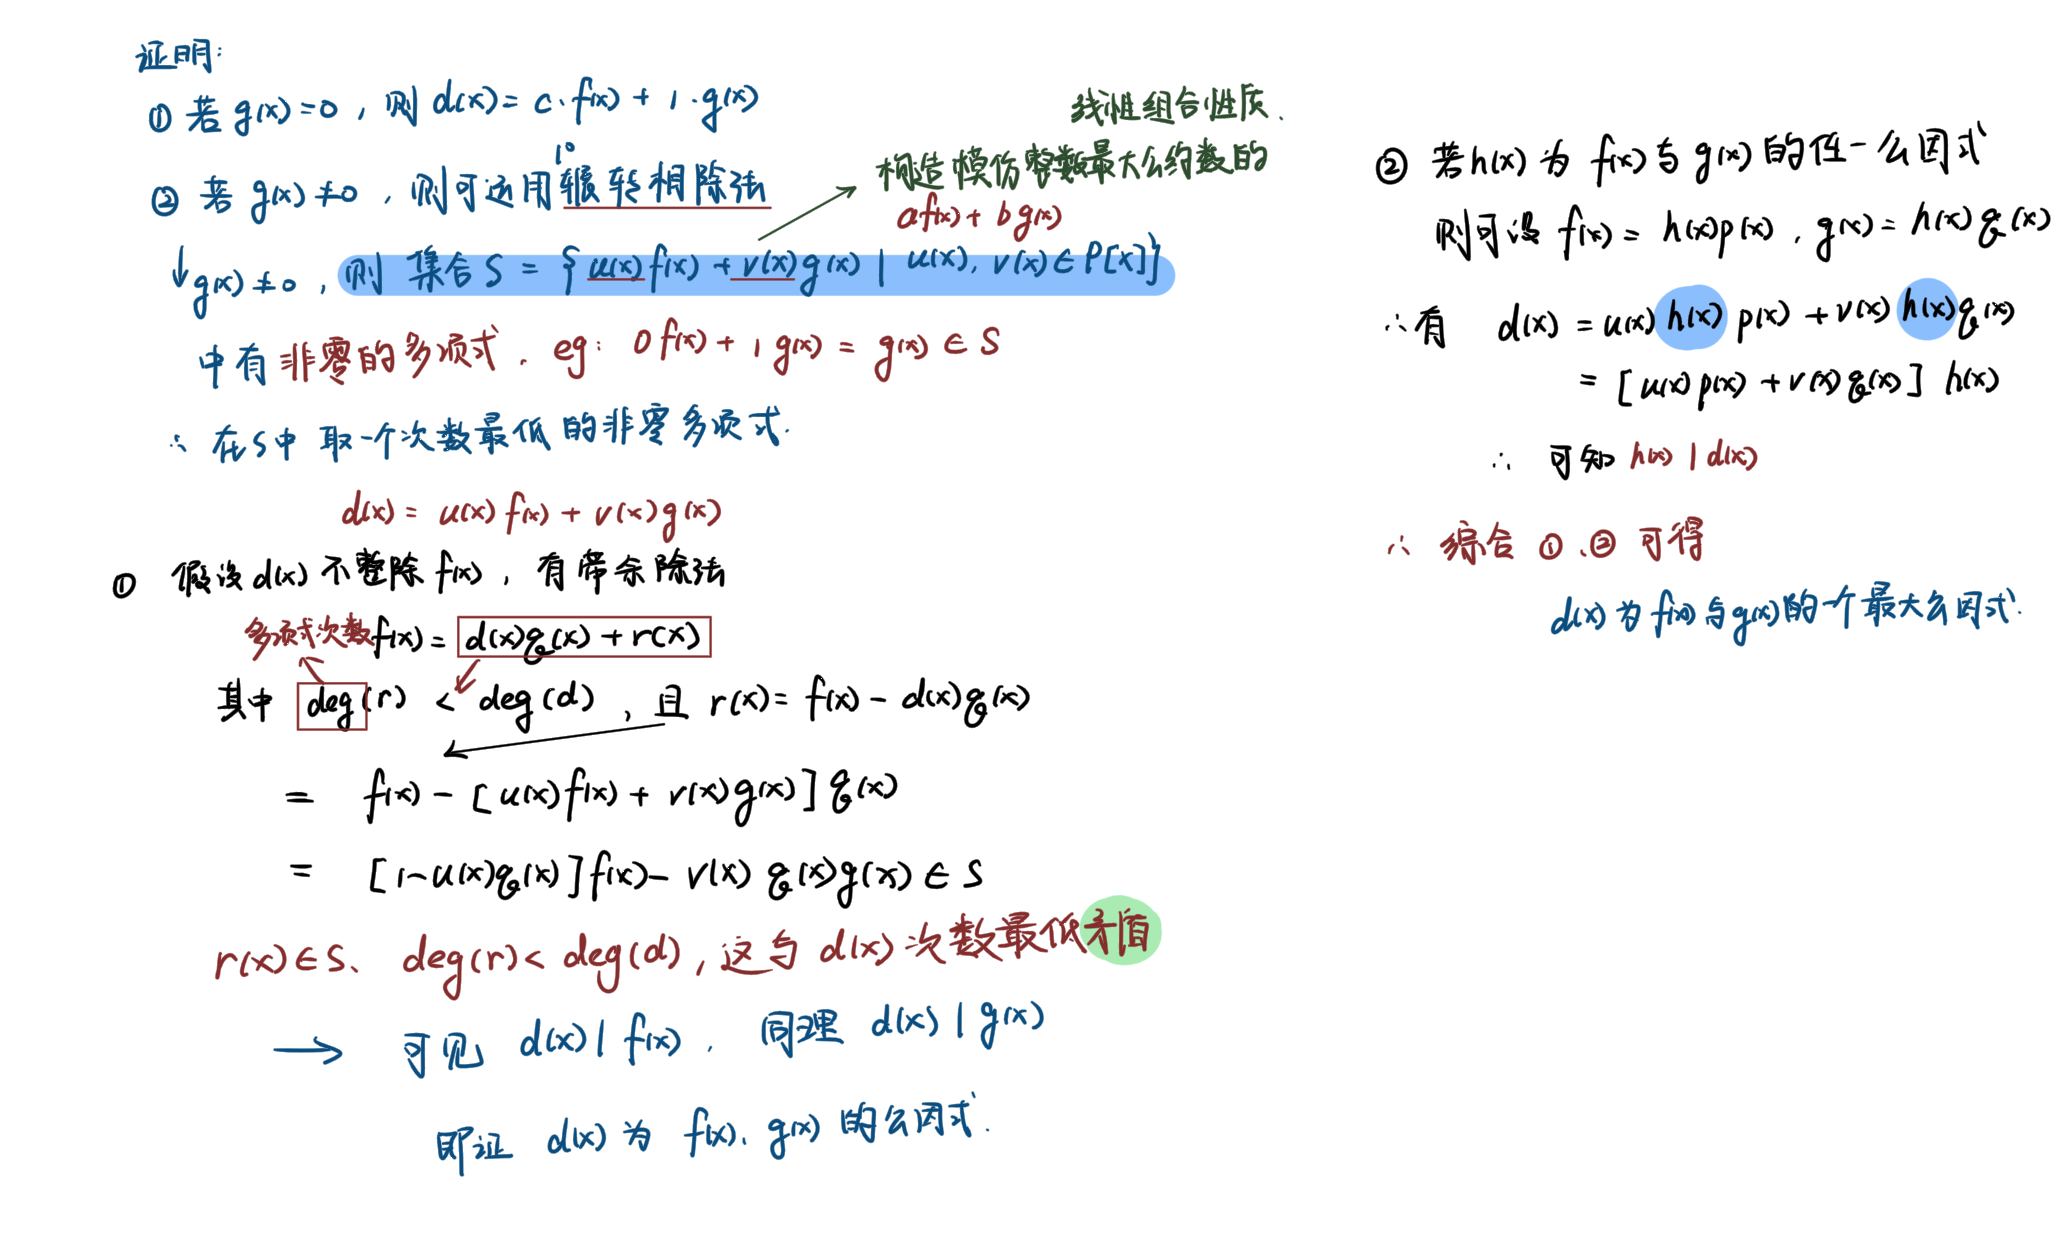 证明:
① 若 g(x)=0 , 则 d(x)= c·f(x) + 1·g(x)
1°
② 若 g(x)≠0 , 则可运用辗转相除法
↓g(x)≠0 , 则 集合 S = { u(x)f(x) + v(x)g(x) | u(x), v(x)∈P[x]}
线性组合性质.
构造模仿整数最大公约数的
af(x)+ bg(x)
中有 非零的多项式. eg: 0f(x)+ 1g(x) = g(x) ∈ S
∴ 在S中 取一个次数最低的非零多项式.
d(x) = u(x)f(x) + v(x)g(x)
① 假设d(x)不整除f(x) , 有带余除法
多项式次数 f(x) = d(x)q(x) + r(x)
其中 deg(r) < deg(d) , 且 r(x) = f(x) - d(x)q(x)
= f(x) - [u(x)f(x) + r(x)g(x)]q(x)
= [1-u(x)q(x)]f(x) - v(x)q(x)g(x) ∈ S
r(x)∈S、 deg(r)< deg(d) , 这与 d(x) 次数最低矛盾
→ 可见 d(x)| f(x) . 同理 d(x) | g(x)
即证 d(x) 为 f(x)、g(x) 的公因式.
② 若h(x) 为 f(x)与g(x)的任一公因式
则可设 f(x) = h(x)p(x) , g(x) = h(x)q(x)
∴有 d(x) = u(x)h(x)p(x) + v(x)h(x)q(x)
= [u(x)p(x) + v(x)q(x)] h(x)
∴ 可知 h(x) | d(x)
∴ 综合 ①、② 可得
d(x)为f(x)与g(x)的一个最大公因式.